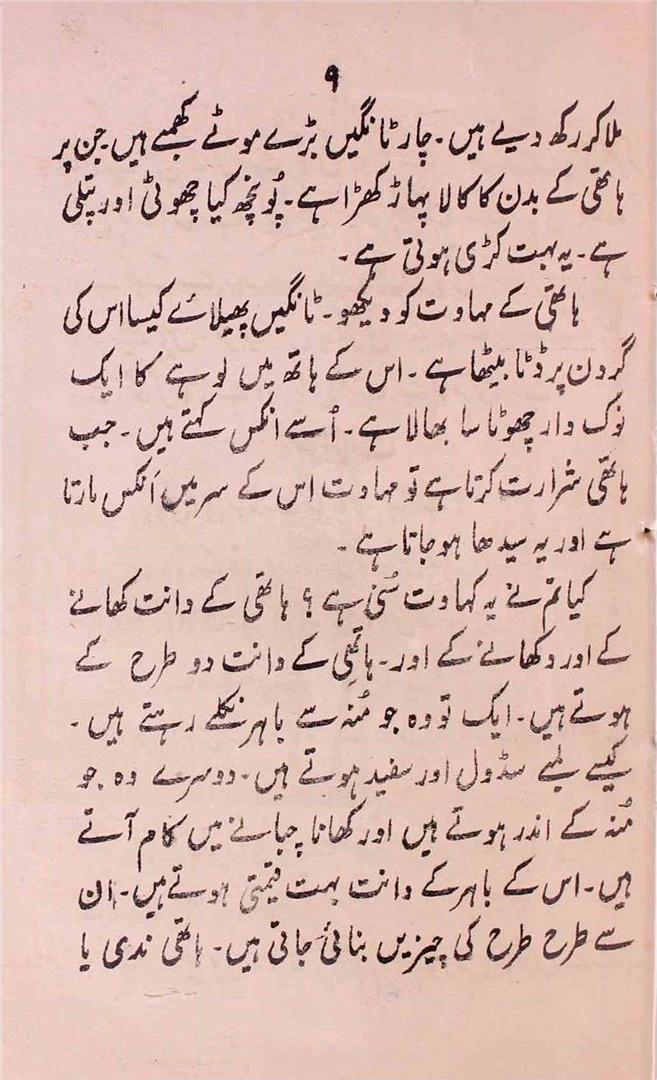 ۹
ملا کر رکھ دیے ہیں۔ چار ٹانگیں بڑے موٹے کھمبے ہیں۔ جن پر
ہاتھی کے بدن کا کالا پہاڑ کھڑا ہے۔ پُونچھ کیا چھوٹی اور پتلی
ہے۔ یہ بہت کڑی ہوتی ہے۔
ہاتھی کے مہاوت کو دیکھو۔ ٹانگیں پھیلائے کیسا اس کی
گردن پر ڈٹا بیٹھا ہے۔ اس کے ہاتھ میں لوہے کا ایک
نوک دار چھوٹا سا بھالا ہے۔ اُسے انکس کہتے ہیں۔ جب
ہاتھی شرارت کرتا ہے تو مہاوت اس کے سر میں اَنکس مارتا
ہے اور یہ سیدھا ہو جاتا ہے۔
کیا تم نے یہ کہاوت سُنی ہے؟ ہاتھی کے دانت کھانے
کے اور دکھانے کے اور۔ ہاتھی کے دانت دو طرح کے
ہوتے ہیں۔ ایک تو وہ جو مُنہ سے باہر نکلے رہتے ہیں۔
کیسے لمبے سڈول اور سفید ہوتے ہیں۔ دوسرے وہ جو
مُنہ کے اندر ہوتے ہیں اور کھانا چبانے میں کام آتے
ہیں۔ اس کے باہر کے دانت بہت قیمتی ہوتے ہیں۔ ان
سے طرح طرح کی چیزیں بنائی جاتی ہیں۔ ہاتھی ندی یا